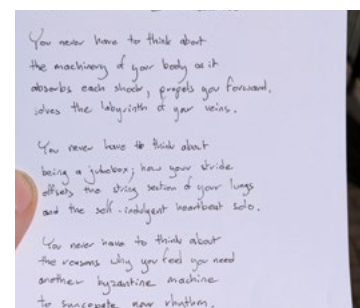 You never have to think about
the machinery of your body as it
absorbs each shock, propels you forward,
solves the labyrinth of your veins.
You never have to think about
being a jukebox; how your stride
offsets the string section of your lungs
and the self-indulgent heartbeat solo.
You never have to think about
the reasons why you feel you need
another byzantine machine
to syncopate your rhythm.